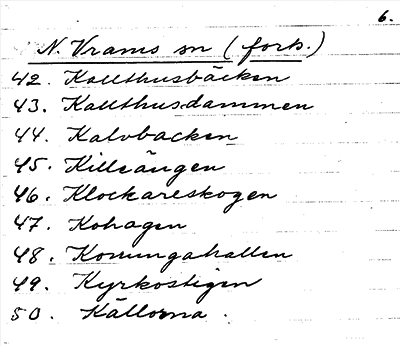 6.
N. Vrams sn (forts.)
42. Kallthusbäcken
43. Kallthusdammen
44. Kalvbacken
45. Killeängen
46. Klockareskogen
47. Kohagen
48. Konungahallen
49. Kyrkostigen
50. Källorna.